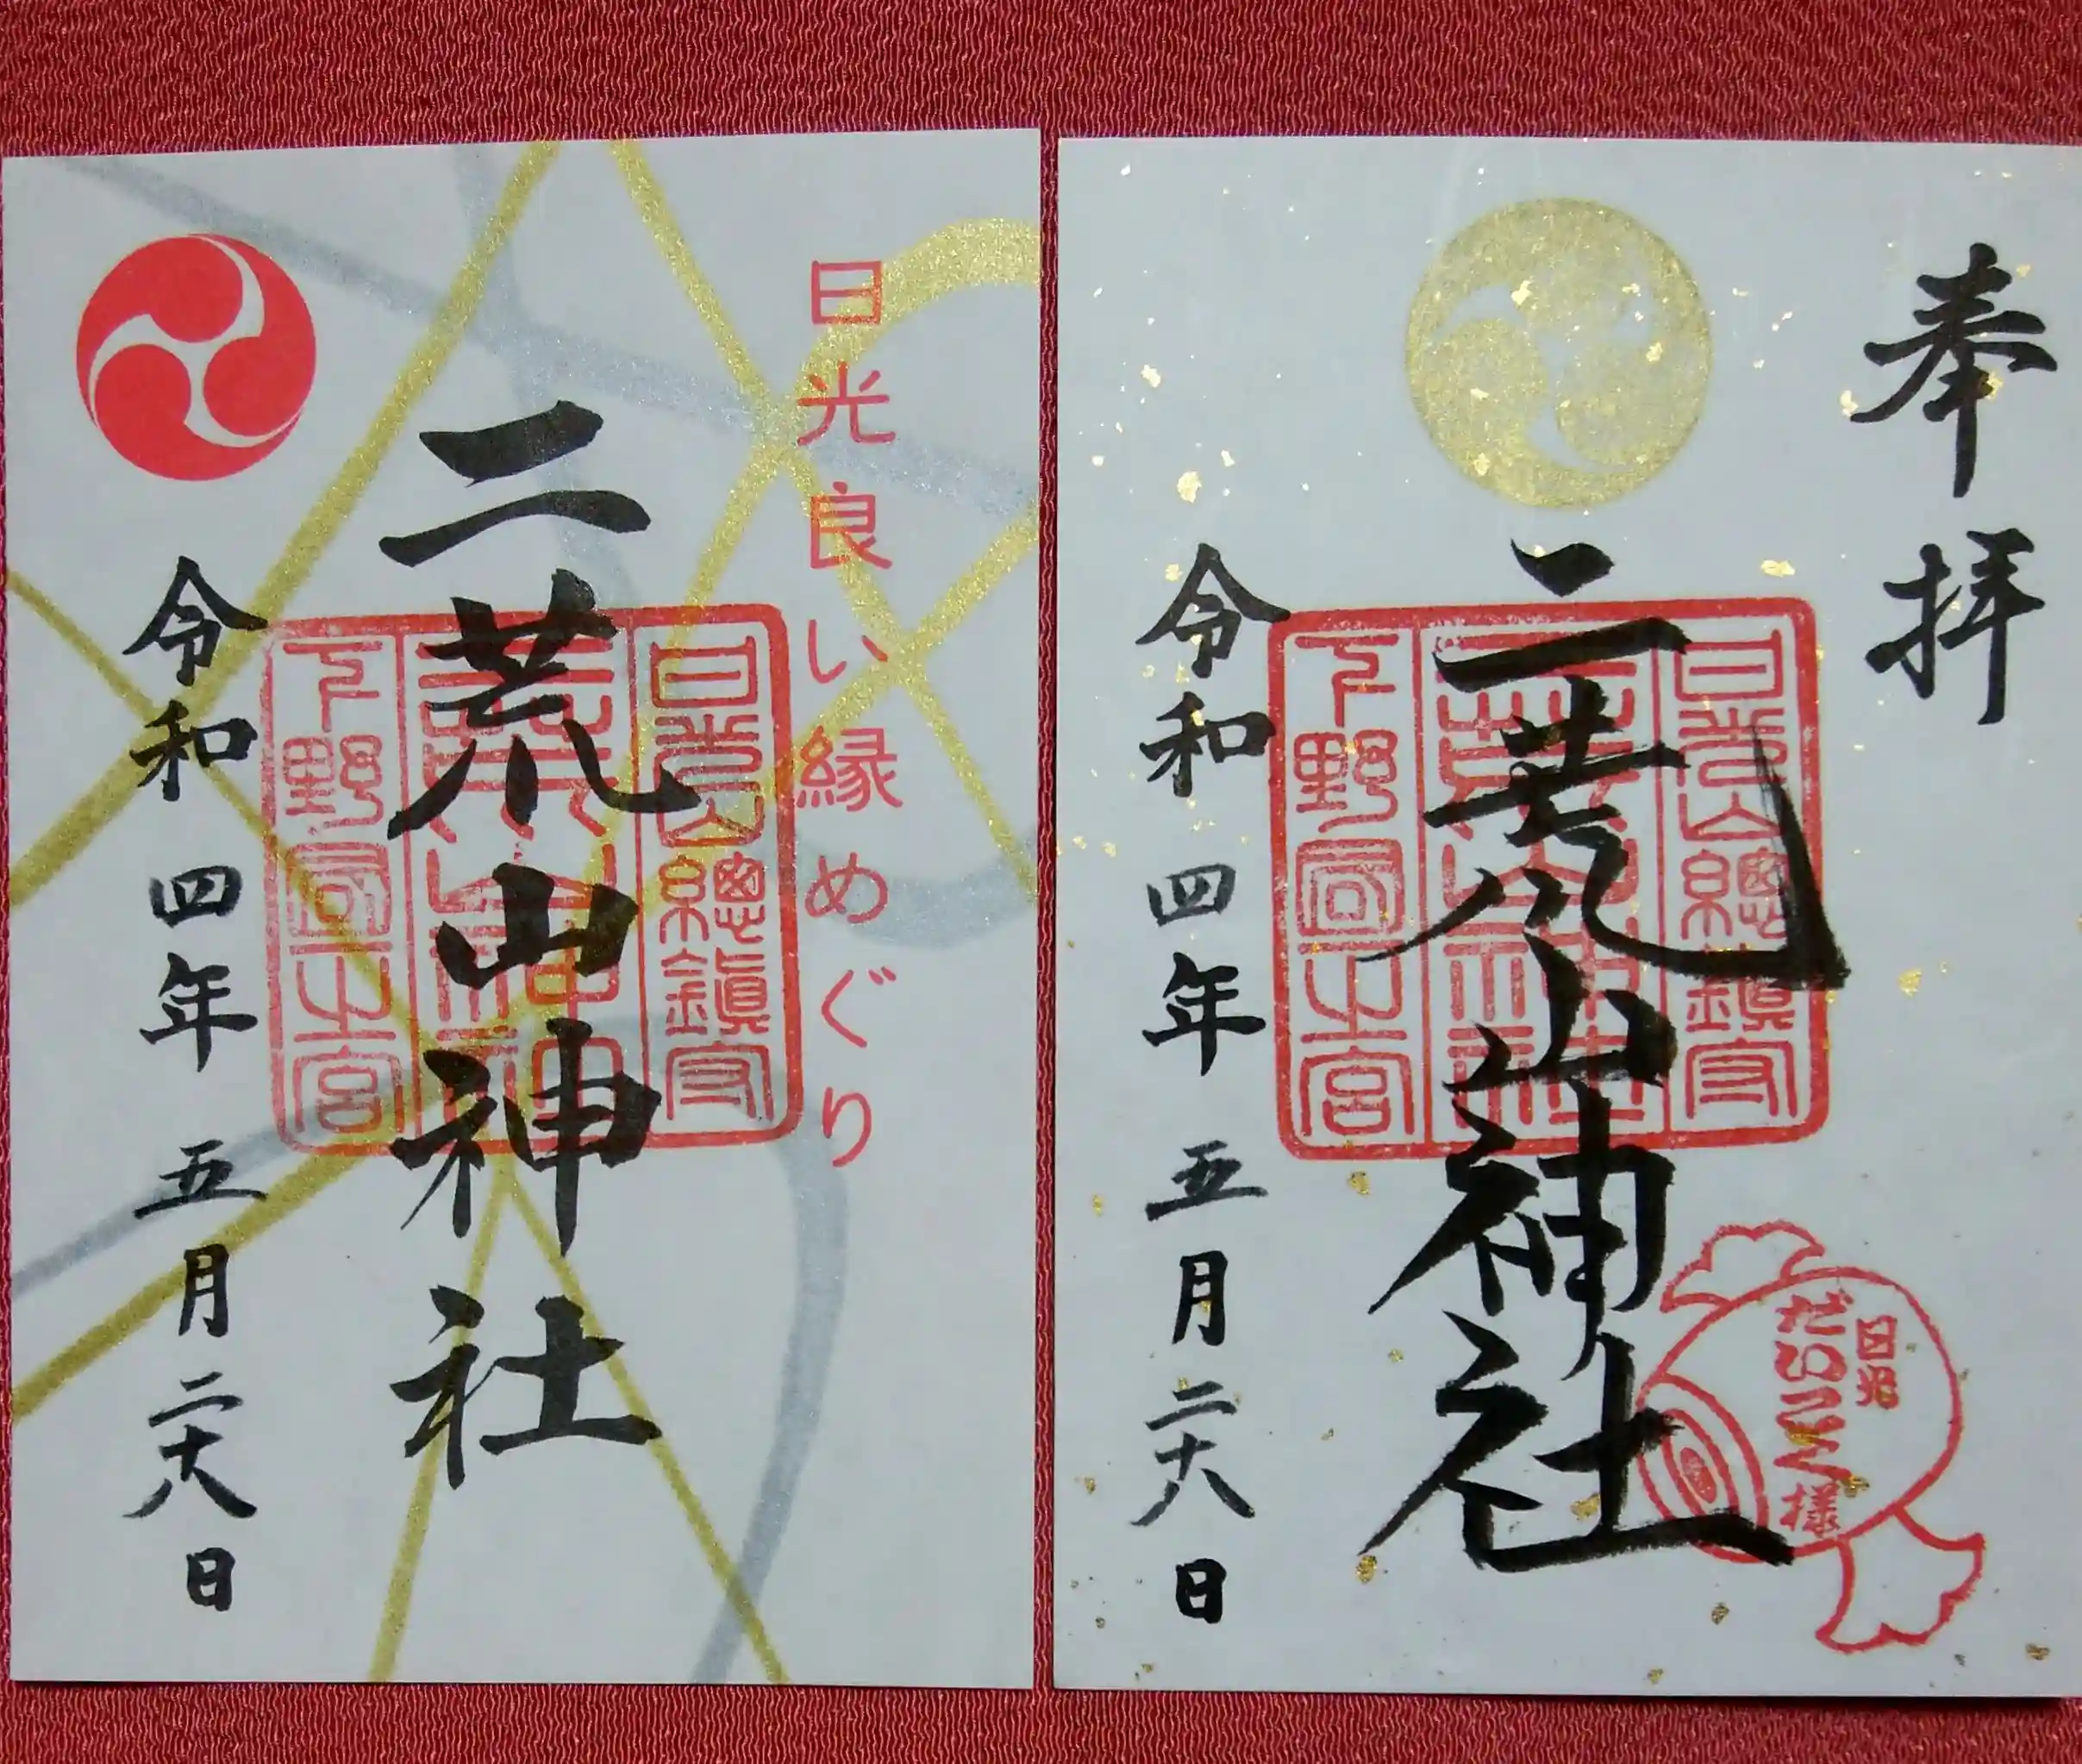 奉拝
二荒山神社
日光山總鎮守
二荒山神社
下野国一之宮
日光
だいこく様
令和四年五月二十八日
日光良い縁めぐり
二荒山神社
日光山總鎮守
二荒山神社
下野国一之宮
令和四年五月二十八日